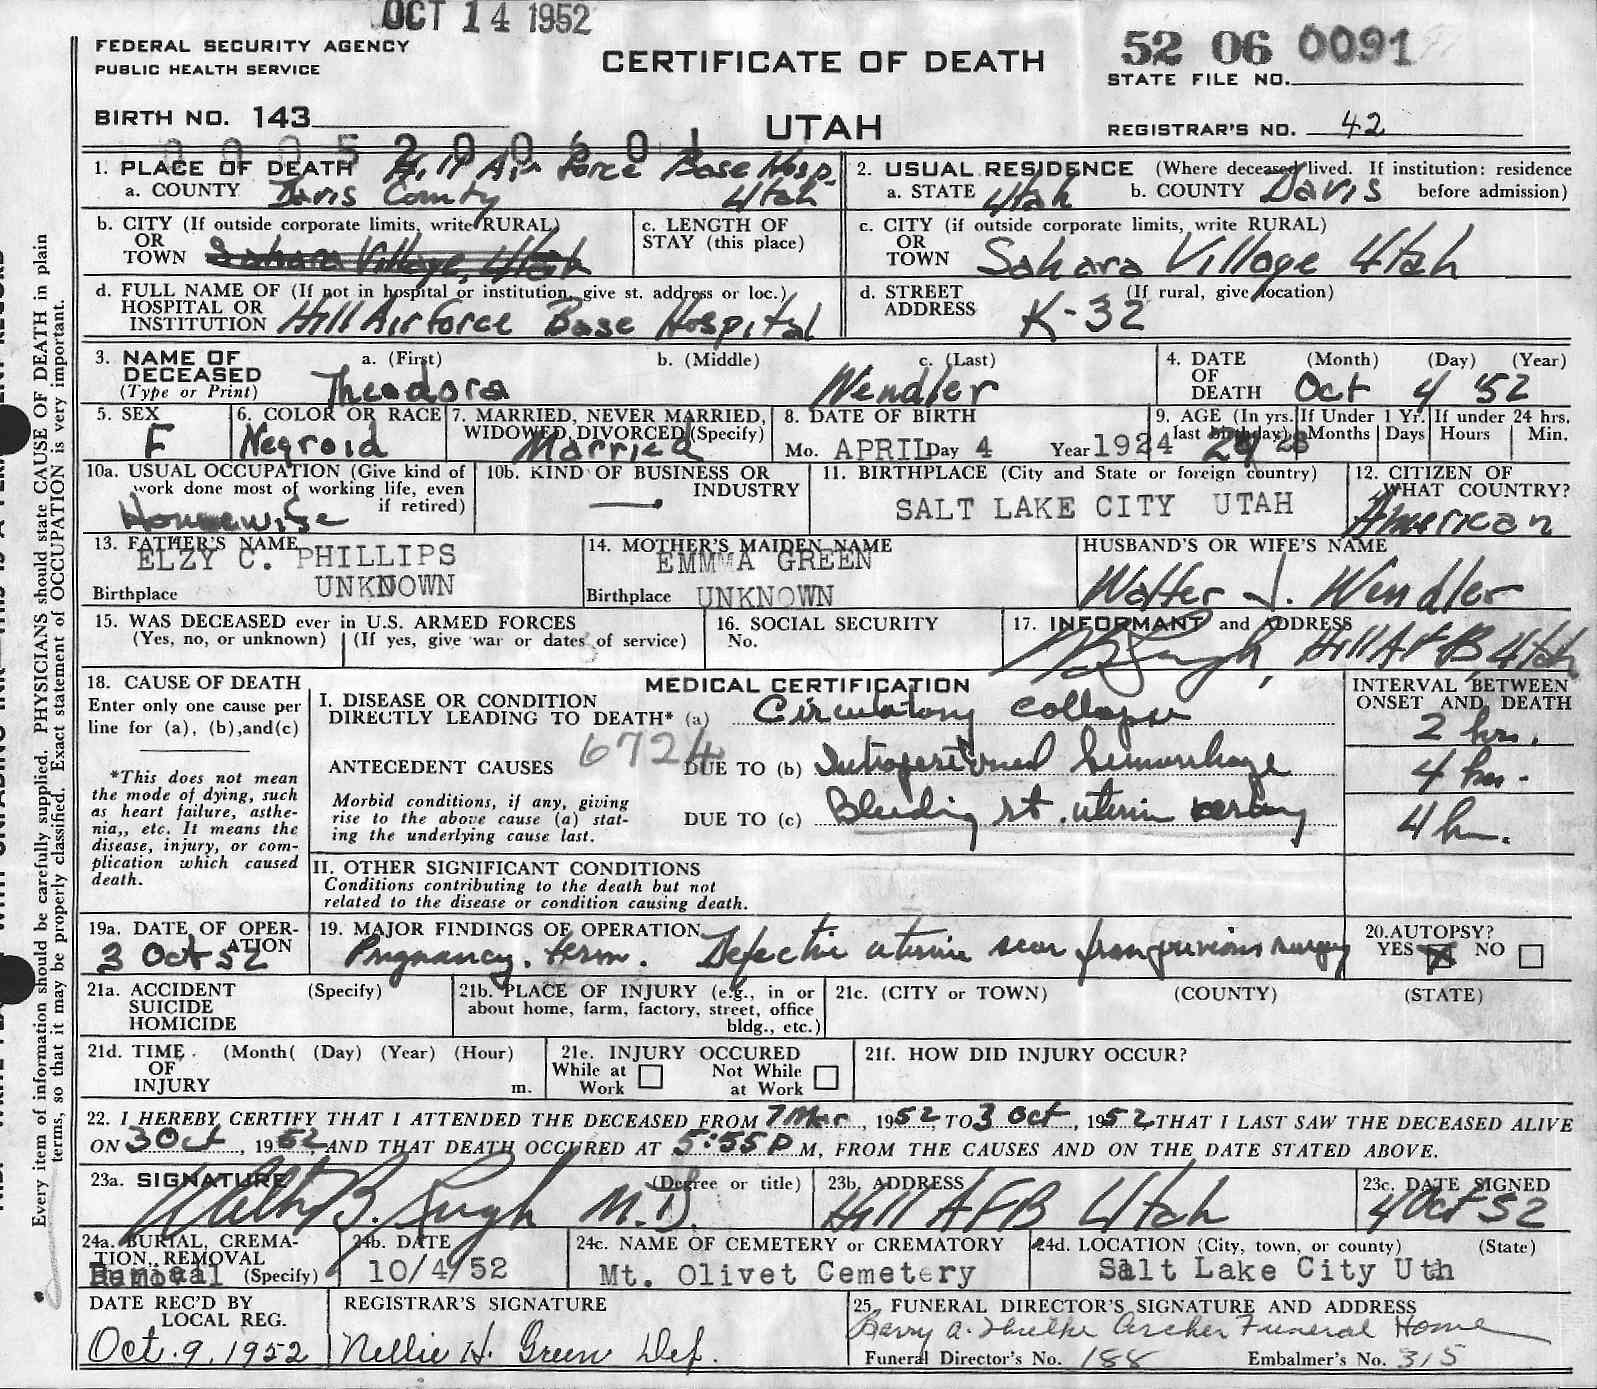 OCT 14 1952
FEDERAL SECURITY AGENCY
PUBLIC HEALTH SERVICE
CERTIFICATE OF DEATH
52 06 0091
STATE FILE NO.
BIRTH NO. 143
UTAH
REGISTRAR'S NO. 42
1. PLACE OF DEATH Hill Air Force Base Hosp.
a. COUNTY Davis County Utah
2. USUAL RESIDENCE (Where deceased lived. If institution: residence
a. STATE Utah b. COUNTY Davis before admission)
b. CITY (If outside corporate limits, write RURAL)
OR
TOWN Sahara Village, Utah
c. LENGTH OF
STAY (this place)
c. CITY (if outside corporate limits, write RURAL)
OR
TOWN Sahara Village Utah
d. FULL NAME OF (If not in hospital or institution, give st. address or loc.)
HOSPITAL OR
INSTITUTION Hill Air Force Base Hospital
d. STREET (If rural, give location)
ADDRESS K-32
3. NAME OF a. (First) b. (Middle) c. (Last)
DECEASED
(Type or Print) Theodora Wendler
4. DATE (Month) (Day) (Year)
OF
DEATH Oct 4 '52
5. SEX
F
6. COLOR OR RACE
Negroid
7. MARRIED, NEVER MARRIED,
WIDOWED, DIVORCED (Specify)
Married
8. DATE OF BIRTH
Mo. APRIL Day 4 Year 1924
9. AGE (In yrs.
last birthday) 28
If Under 1 Yr.
Months Days
If under 24 hrs.
Hours Min.
10a. USUAL OCCUPATION (Give kind of
work done most of working life, even
if retired)
Housewife
10b. KIND OF BUSINESS OR
INDUSTRY
—.
11. BIRTHPLACE (City and State or foreign country)
SALT LAKE CITY UTAH
12. CITIZEN OF
WHAT COUNTRY?
American
13. FATHER'S NAME
ELZY C. PHILLIPS
Birthplace UNKNOWN
14. MOTHER'S MAIDEN NAME
EMMA GREEN
Birthplace UNKNOWN
HUSBAND'S OR WIFE'S NAME
Walter J. Wendler
15. WAS DECEASED ever in U.S. ARMED FORCES
(Yes, no, or unknown) (If yes, give war or dates of service)
16. SOCIAL SECURITY
No.
17. INFORMANT and ADDRESS
Hill AFB, Utah
18. CAUSE OF DEATH
Enter only one cause per
line for (a), (b),and(c)
*This does not mean
the mode of dying, such
as heart failure, asthe-
nia,, etc. It means the
disease, injury, or com-
plication which caused
death.
MEDICAL CERTIFICATION
I. DISEASE OR CONDITION
DIRECTLY LEADING TO DEATH* (a) Circulatory collapse
6724
ANTECEDENT CAUSES DUE TO (b) Intraperitoneal hemorrhage
Morbid conditions, if any, giving
rise to the above cause (a) stat-
ing the underlying cause last.
DUE TO (c) Bleeding rt. uterine artery
INTERVAL BETWEEN
ONSET AND DEATH
2 hrs.
4 hrs.
4 h.
II. OTHER SIGNIFICANT CONDITIONS
Conditions contributing to the death but not
related to the disease or condition causing death.
19a. DATE OF OPER-
ATION
3 Oct 52
19. MAJOR FINDINGS OF OPERATION
Pregnancy, term. Defective uterine scar from previous surgery
20. AUTOPSY?
YES X NO
21a. ACCIDENT (Specify)
SUICIDE
HOMICIDE
21b. PLACE OF INJURY (e.g., in or
about home, farm, factory, street, office
bldg., etc.)
21c. (CITY or TOWN) (COUNTY) (STATE)
21d. TIME (Month( (Day) (Year) (Hour)
OF
INJURY m.
21e. INJURY OCCURED
While at Not While
Work at Work
21f. HOW DID INJURY OCCUR?
22. I HEREBY CERTIFY THAT I ATTENDED THE DECEASED FROM 7 Mar, 1952 TO 3 Oct, 1952 THAT I LAST SAW THE DECEASED ALIVE
ON 3 Oct, 1952, AND THAT DEATH OCCURED AT 5:55 P M, FROM THE CAUSES AND ON THE DATE STATED ABOVE.
23a. SIGNATURE (Degree or title)
M.D.
23b. ADDRESS
Hill AFB Utah
23c. DATE SIGNED
4 Oct 52
24a. BURIAL, CREMA-
TION, REMOVAL
(Specify)
24b. DATE
10/4/52
24c. NAME OF CEMETERY or CREMATORY
Mt. Olivet Cemetery
24d. LOCATION (City, town, or county) (State)
Salt Lake City Uth
DATE REC'D BY
LOCAL REG.
Oct. 9, 1952
REGISTRAR'S SIGNATURE
Nellie H. Green Dep.
25. FUNERAL DIRECTOR'S SIGNATURE AND ADDRESS
Archer Funeral Home
Funeral Director's No. 188 Embalmer's No. 315
Every item of information should be carefully supplied. PHYSICIANS should state CAUSE OF DEATH in plain
terms, so that it may be properly classified. Exact statement of OCCUPATION is very important.